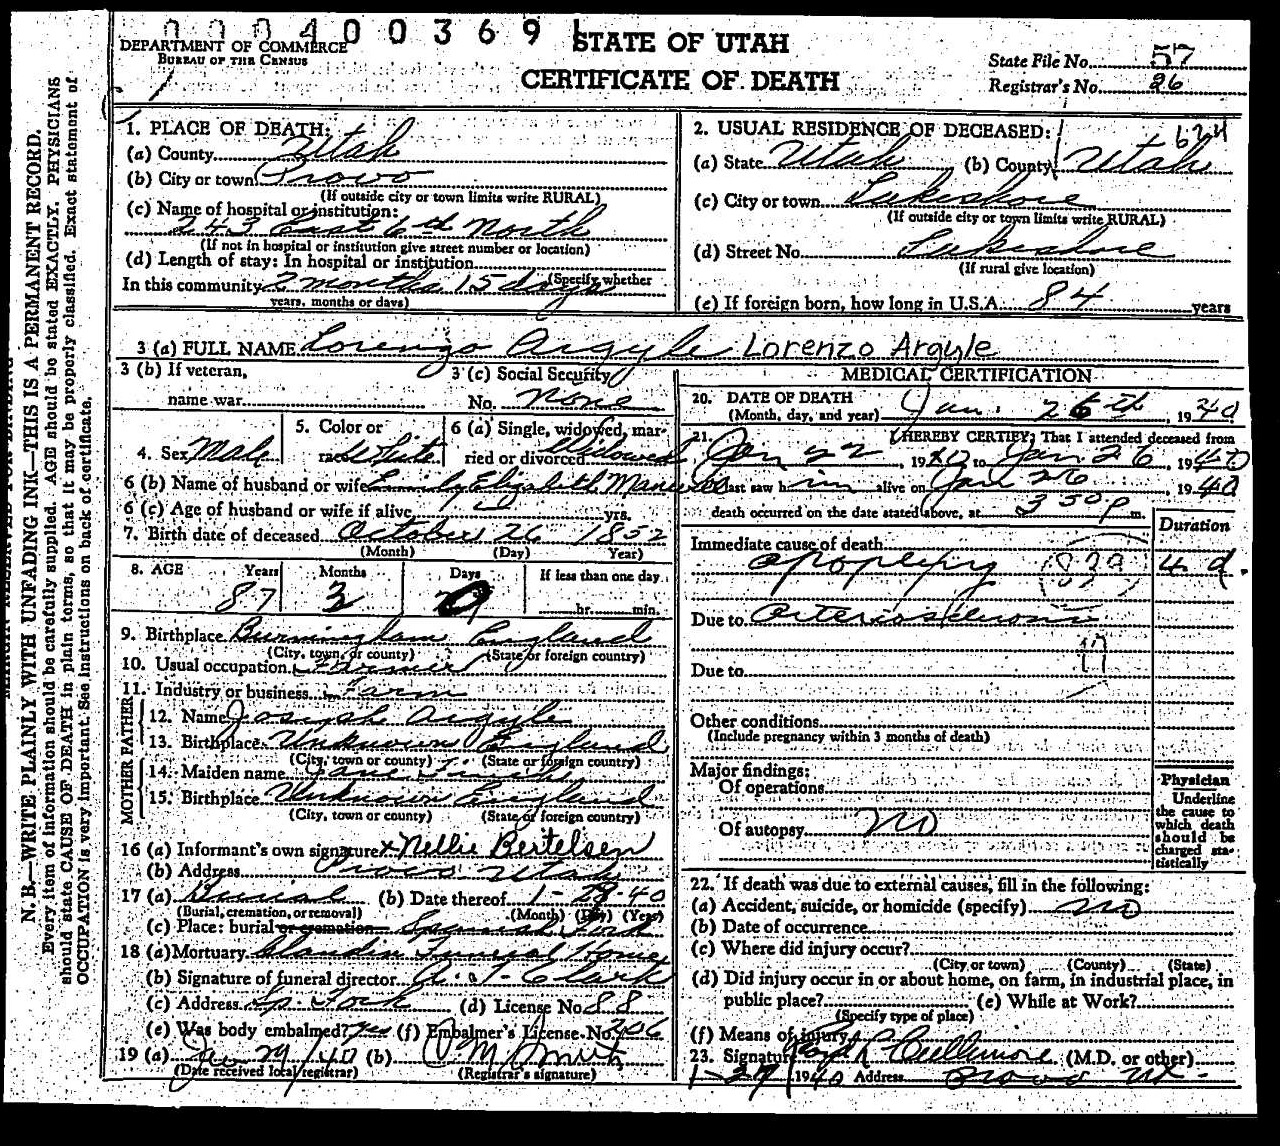 000400369
DEPARTMENT OF COMMERCE
BUREAU OF THE CENSUS
STATE OF UTAH
CERTIFICATE OF DEATH
State File No. 57
Registrar's No. 26
N. B.—WRITE PLAINLY WITH UNFADING INK—THIS IS A PERMANENT RECORD.
Every item of information should be carefully supplied. AGE should be stated EXACTLY. PHYSICIANS
should state CAUSE OF DEATH in plain terms, so that it may be properly classified. Exact statement of
OCCUPATION is very important. See instructions on back of certificate.
1. PLACE OF DEATH:
(a) County Utah
(b) City or town Provo
(If outside city or town limits write RURAL)
(c) Name of hospital or institution:
243 East 6th North
(If not in hospital or institution give street number or location)
(d) Length of stay: In hospital or institution
In this community 2 months 15 days (Specify whether
years, months or days)
2. USUAL RESIDENCE OF DECEASED: 624
(a) State Utah (b) County Utah
(c) City or town Lakeshore
(If outside city or town limits write RURAL)
(d) Street No. Lakeshore
(If rural give location)
(e) If foreign born, how long in U.S.A. 84 years
3 (a) FULL NAME Lorenzo Argyle Lorenzo Argyle
3 (b) If veteran,
name war
3 (c) Social Security
No. None
4. Sex Male
5. Color or
race White
6 (a) Single, widowed, mar-
ried or divorced Widowed
6 (b) Name of husband or wife Emily Elizabeth
6 (c) Age of husband or wife if alive, yrs.
7. Birth date of deceased October 26 1852
(Month) (Day) Year)
8. AGE Years Months Days If less than one day
87 3 0 hr. min.
9. Birthplace Burmingham England
(City, town, or county) (State or foreign country)
10. Usual occupation Farmer
11. Industry or business Farm
FATHER
12. Name Joseph Argyle
13. Birthplace Unknown England
(City, town or county) (State or foreign country)
MOTHER
14. Maiden name Jane
15. Birthplace Unknown England
(City, town or county) (State or foreign country)
16 (a) Informant's own signature x Nellie Bertelsen
(b) Address Provo Utah
17 (a) Burial (b) Date thereof 1-29-40
(Burial, cremation, or removal) (Month) (Day) (Year)
(c) Place: burial or cremation Spanish Fork
18 (a) Mortuary Claudin Funeral Home
(b) Signature of funeral director A. T. Clark
(c) Address Sp. Fork (d) License No. 88
(e) Was body embalmed? yes (f) Embalmer's License No. 206
19 (a) Jan 29/40 (b)
(Date received local registrar) (Registrar's signature)
MEDICAL CERTIFICATION
20. DATE OF DEATH
(Month, day, and year) Jan. 26th, 1940
21. I HEREBY CERTIFY, That I attended deceased from
Jan 22, 1940 to Jan 26, 1940
I last saw him alive on Jan 26, 1940
death occurred on the date stated above, at 3 50 p m.
Duration
Immediate cause of death
apoplexy 83a 4 d.
Due to Arteriosklerosis
Due to
Other conditions
(Include pregnancy within 3 months of death)
Major findings:
Of operations
Of autopsy no
Physician
Underline
the cause to
which death
should be
charged sta-
tistically
22. If death was due to external causes, fill in the following:
(a) Accident, suicide, or homicide (specify) no
(b) Date of occurrence
(c) Where did injury occur?
(City or town) (County) (State)
(d) Did injury occur in or about home, on farm, in industrial place, in
public place? (e) While at Work?
(Specify type of place)
(f) Means of injury
23. Signature Cullimore (M.D. or other)
1-27 1940 Address Provo Ut.